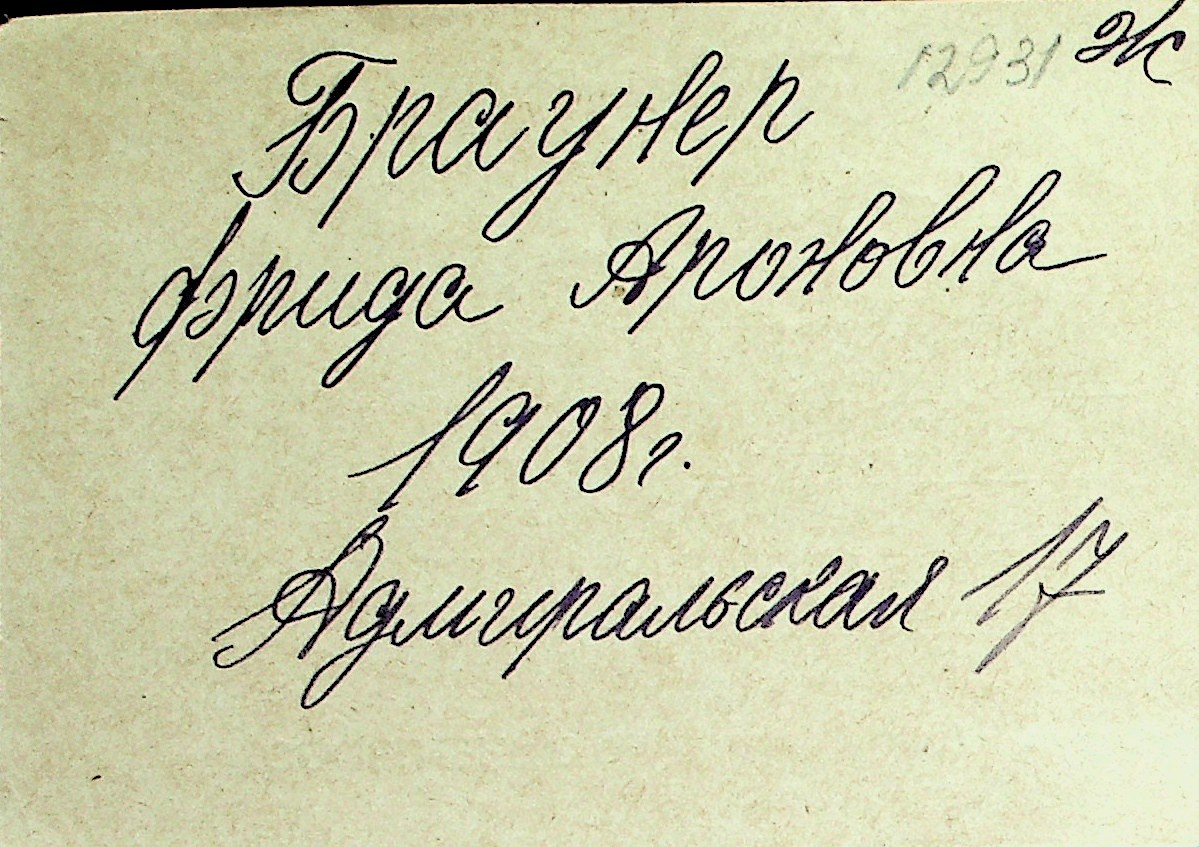 12931 ж
Браунер
Фрида Ароновна
1908 г.
Адмиральская 17